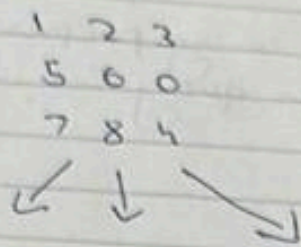 1 2 3
5 6 0
7 8 4